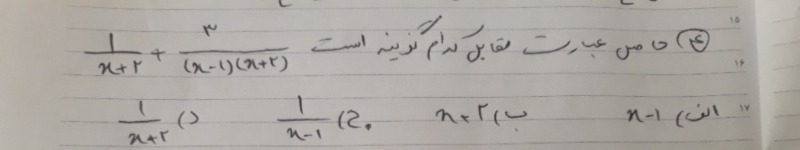 ۱۵
۴) حاصل عبارت مقابل کدام گزینه است 1/(x+۲) + ۳/((x-1)(x+۲))
۱۶
الف) x-1 ب) x+۲ ج) 1/(x-1) د) 1/(x+۲)
۱۷